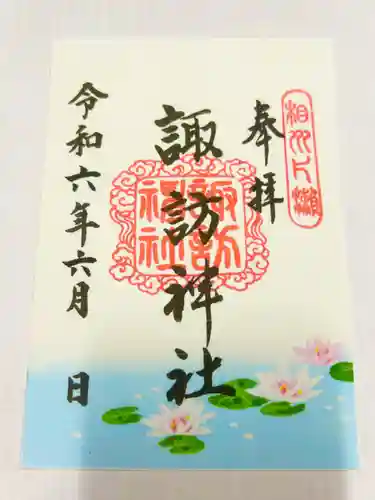 相州片瀬
奉拝
諏訪神社
諏訪神社
令和六年六月 日